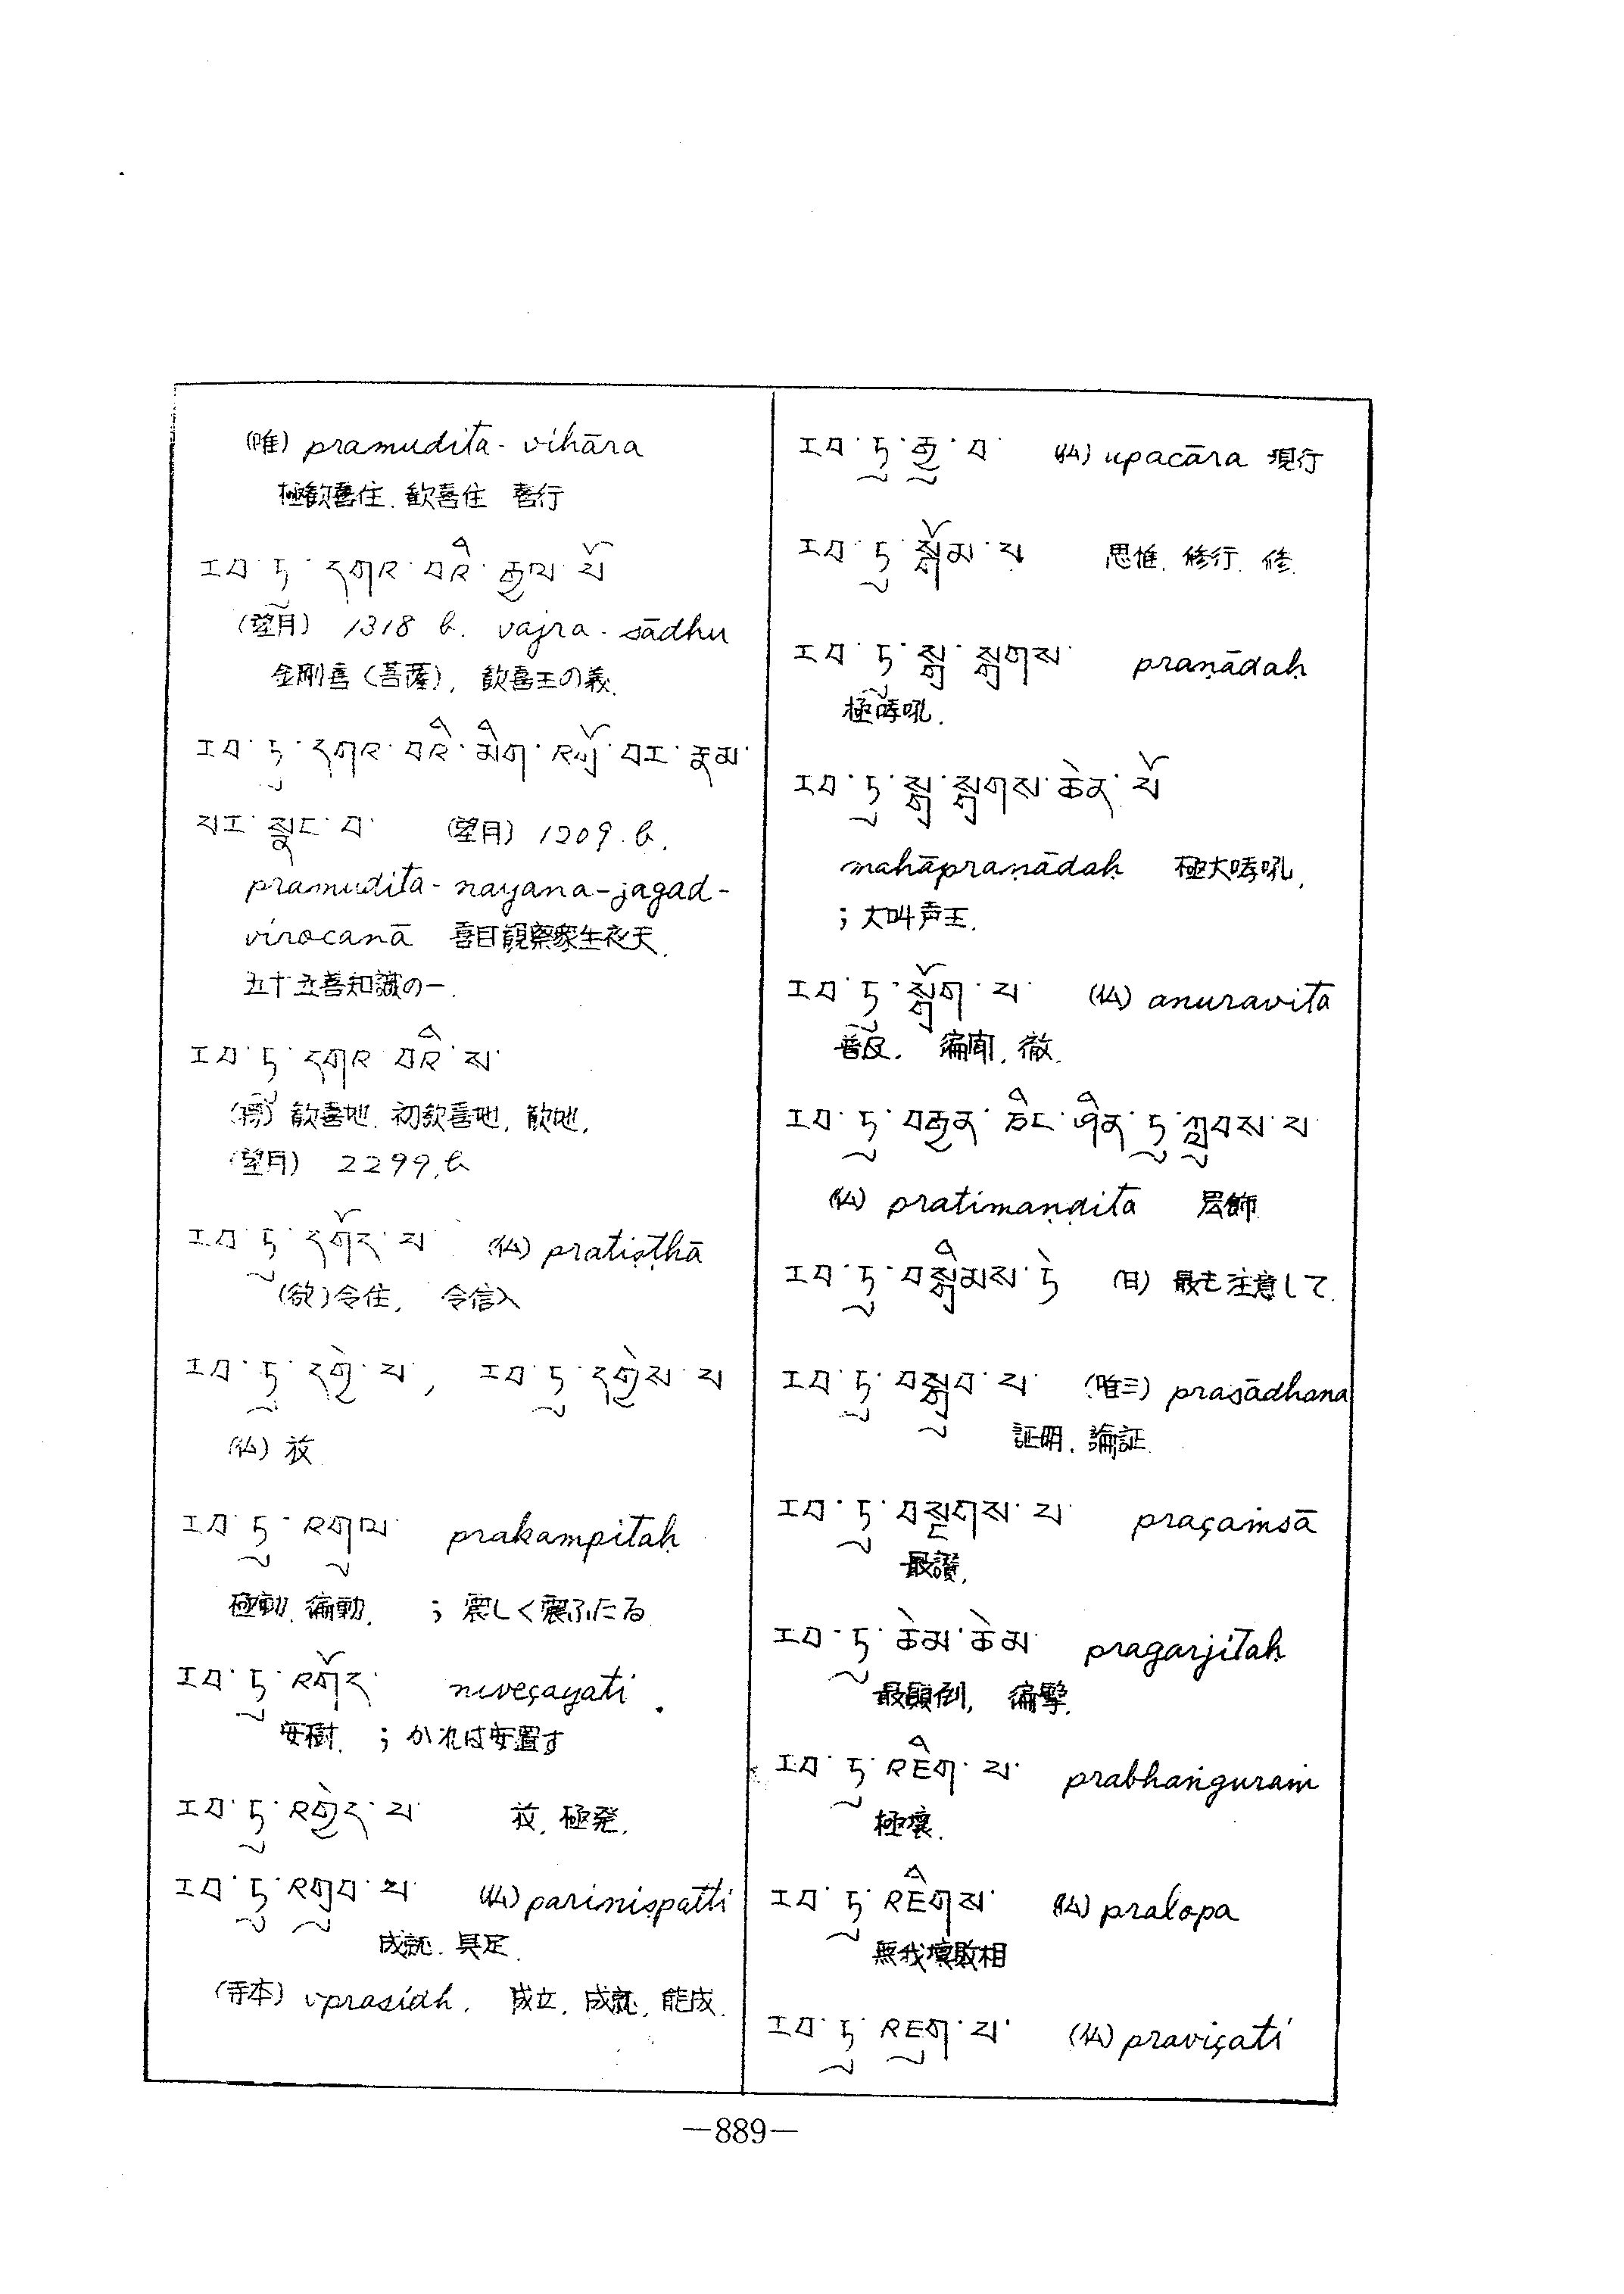 (唯) pramudita-vihāra
極歓喜住. 歓喜住 喜行
རབ་ཏུ་དགའ་བའི་རྒྱལ་པོ
(望月) 1318 b. vajra-sādhu
金剛喜(菩薩), 歓喜王の義.
རབ་ཏུ་དགའ་བའི་མིག་འགྲོ་བར་རྣམ་
པར་སྣང་བ་ (望月) 1209.b.
pramudita-nayana-jagad-
virocanā 喜目観察衆生夜天.
五十五善知識の一.
རབ་ཏུ་དགའ་བའི་ས་
歓喜地. 初歓喜地, 歓地,
(望月) 2299.b
རབ་ཏུ་དགོད་པ་ (仏) pratiṣṭhā
令住, 令信入
རབ་ཏུ་དགྱེ་བ་, རབ་ཏུ་དགྱེས་པ
(仏) 放
རབ་ཏུ་འགུལ་ prakampitaḥ
極動, 徧動. ; 震しく震ふたる
རབ་ཏུ་འགོད་ niveçayati.
安樹. ; かれは安置す
རབ་ཏུ་འགྱེད་པ་ 放, 極発.
རབ་ཏུ་འགྲུབ་པ་ (仏) pariniṣpatti
成就. 具足.
(寺本) √prasidh. 成立, 成就, 能成.
རབ་ཏུ་རྒྱུ་བ་ (仏) upacāra 現行
རབ་ཏུ་སྒོམ་པ་ 思惟. 修行. 修.
རབ་ཏུ་སྒྲ་སྒྲགས་ praṇādaḥ
極哮吼.
རབ་ཏུ་སྒྲ་སྒྲགས་ཆེན་པོ
mahāpraṇādaḥ 極大哮吼,
; 大叫声王.
རབ་ཏུ་སྒྲོག་པ་ (仏) anuravita
普及. 徧聞, 徹.
རབ་ཏུ་བརྒྱན་ཅིང་ཤིན་ཏུ་ཀླུབས་པ
(仏) pratimaṇḍita 层飾
རབ་ཏུ་བསྒྲིམས་ཏེ (目) 最も注意して.
རབ་ཏུ་བསྒྲུབ་པ་ (唯三) prasādhana
証明. 論証.
རབ་ཏུ་བསྔགས་པ་ praçaṁsā
最讃,
རབ་ཏུ་ཆེམ་ཆེམ་ pragarjitaḥ
最顛倒, 徧撃.
རབ་ཏུ་འཇིག་པ་ prabhaṅguraṁ
極壊.
རབ་ཏུ་འཇིགས་ (仏) pralopa
無我壊敗相
རབ་ཏུ་འཇུག་པ་ (仏) praviçati
—889—